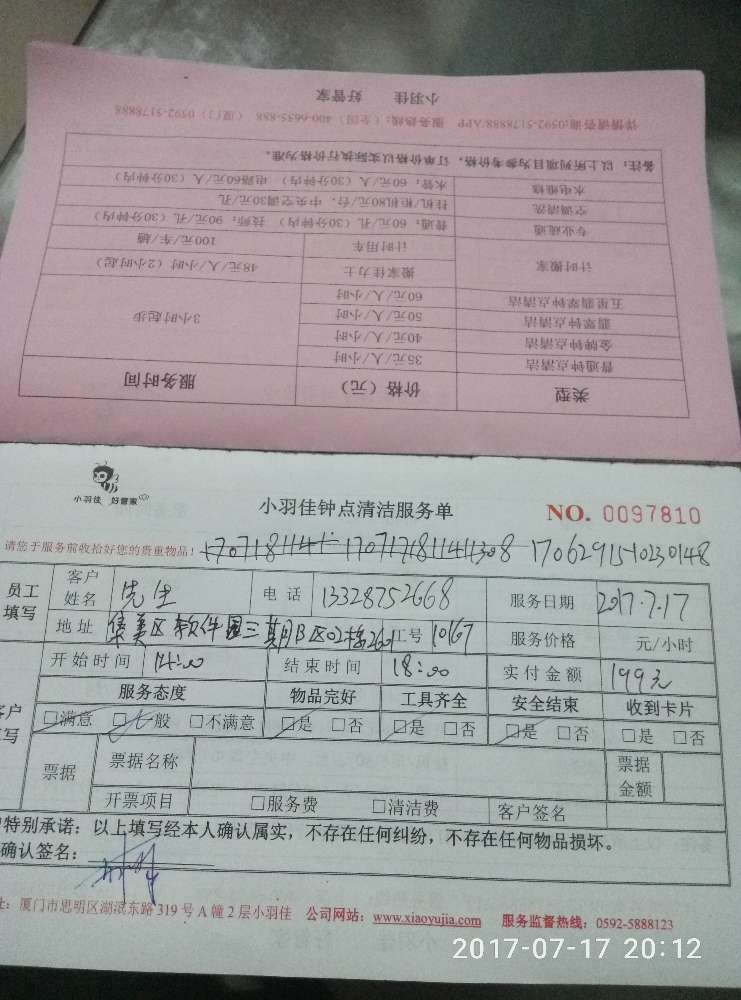 小羽佳 好管家
详情请咨询:0592-5178888/APP 服务热线:(全国)400-6635-888 (厦门)0592-5178888
类型 价格(元) 服务时间
普通钟点清洁 35元/人/小时 3小时起步
金牌钟点清洁 40元/人/小时
翡翠钟点清洁 50元/人/小时
五星翡翠钟点清洁 60元/人/小时
计时搬家 搬家佳力士 48元/人/小时(2小时起)
计时用车 100元/车/趟
专业疏通 普通:60元/孔(30分钟内) 技师:90元/孔(30分钟内)
空调清洗 挂机/柜机80元/台,中央空调30元/孔
水电维修 水管:60元/人(30分钟内) 电路60元/人(30分钟内)
备注:以上所列项目为参考价格,订单价格以实际执行价格为准。
小羽佳 好管家
小羽佳钟点清洁服务单 NO. 0097810
请您于服务前收拾好您的贵重物品! 1706291510230148
员工填写 客户姓名 先生 电话 13328752668 服务日期 2017.7.17
地址 集美区软件园三期B区02栋2601 工号 10167 服务价格 元/小时
开始时间 14:00 结束时间 18:00 实付金额 199元
服务态度 物品完好 工具齐全 安全结束 收到卡片
□满意 □一般 □不满意 □是 □否 □是 □否 □是 □否 □是 □否
票据 票据名称 票据金额
开票项目 □服务费 □清洁费 客户签名
特别承诺:以上填写经本人确认属实,不存在任何纠纷,不存在任何物品损坏。
确认签名:
址:厦门市思明区湖滨东路319号A幢2层小羽佳 公司网站:www.xiaoyujia.com 服务监督热线:0592-5888123
2017-07-17 20:12